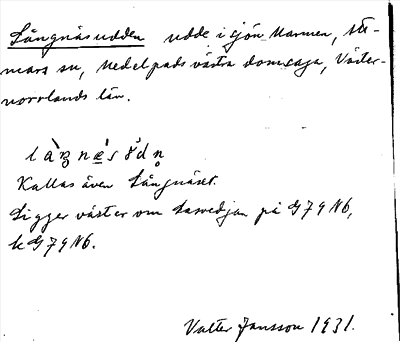 Långnäsudden udde i sjön Marmen, Stö-
mars sn, Medelpads västra domsaga, Väster-
norrlands län.
Kallas även Långnäset.
Ligger väster om Lasvedjan på G79Nb,
k G79Nb.
Valter Jansson 1931.